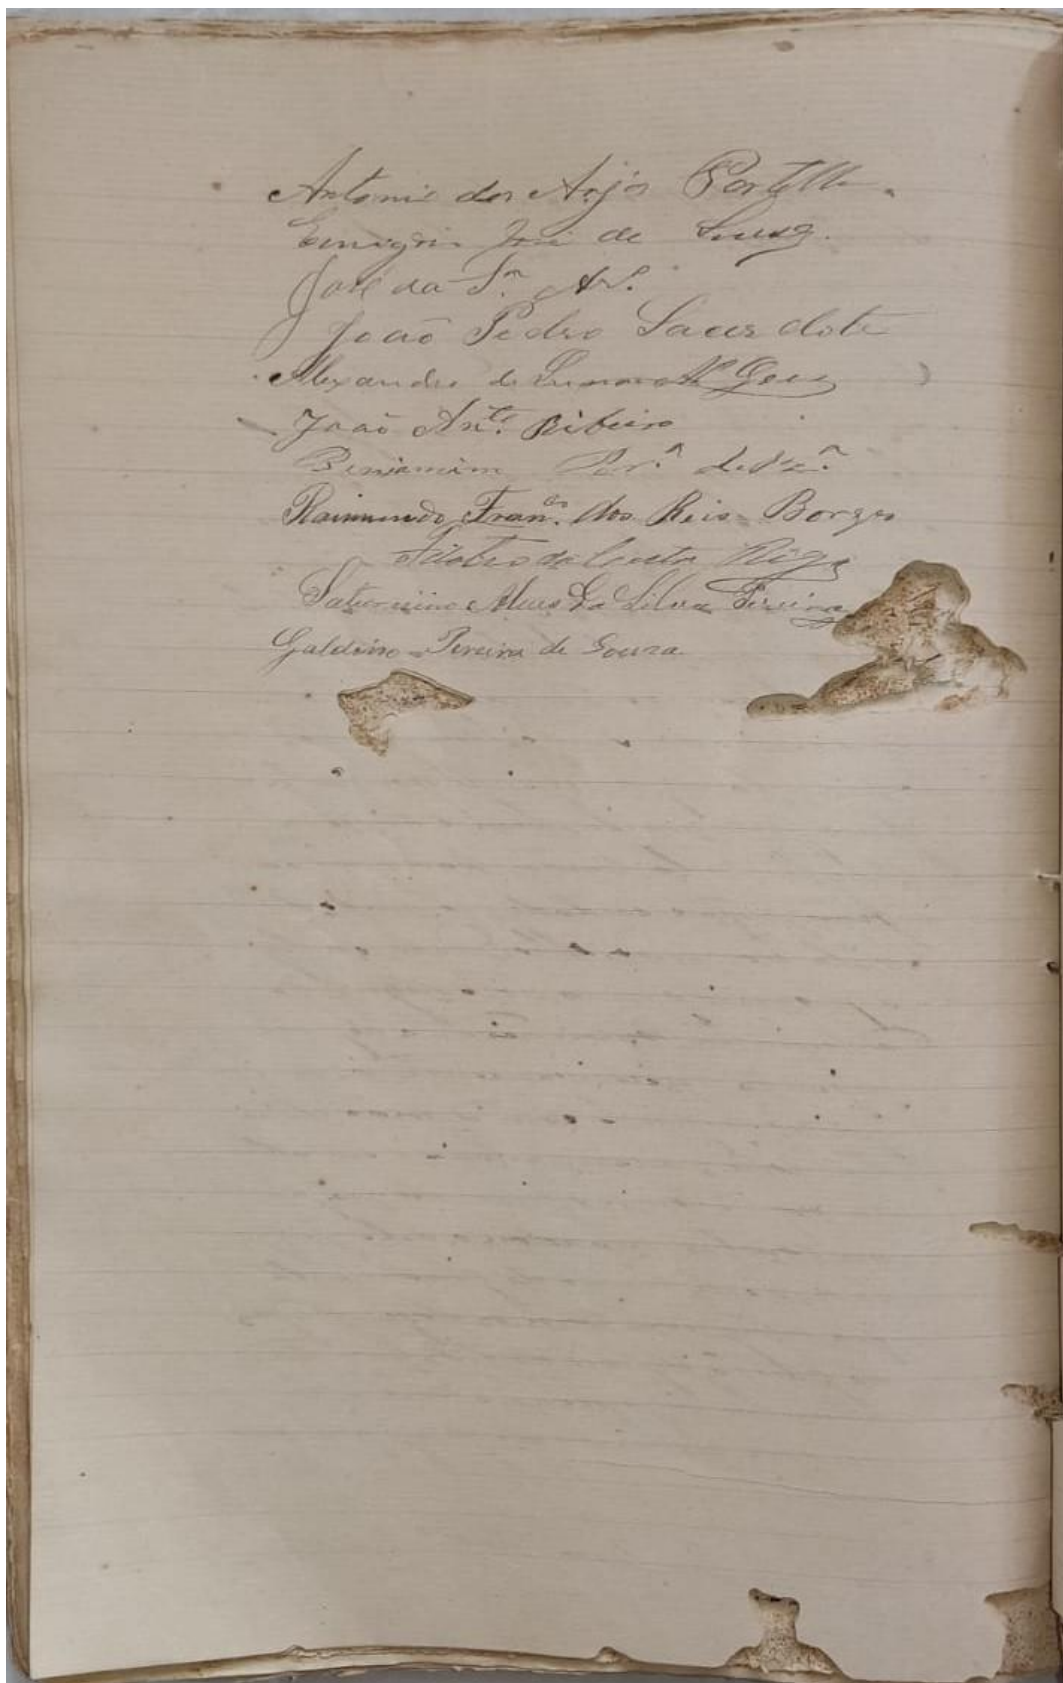 Antonio dos Anjos Portella
José de Souza.
José da S.ª Ar.º
João Pedro Sacerdote
Alexandre de
João Ant.º Ribeiro
Benjamim Per.ª de
Raimundo Fran.co dos Reis Borges
da Costa
Saturnino Alves da Silva Pereira
Galdino Pereira de Souza